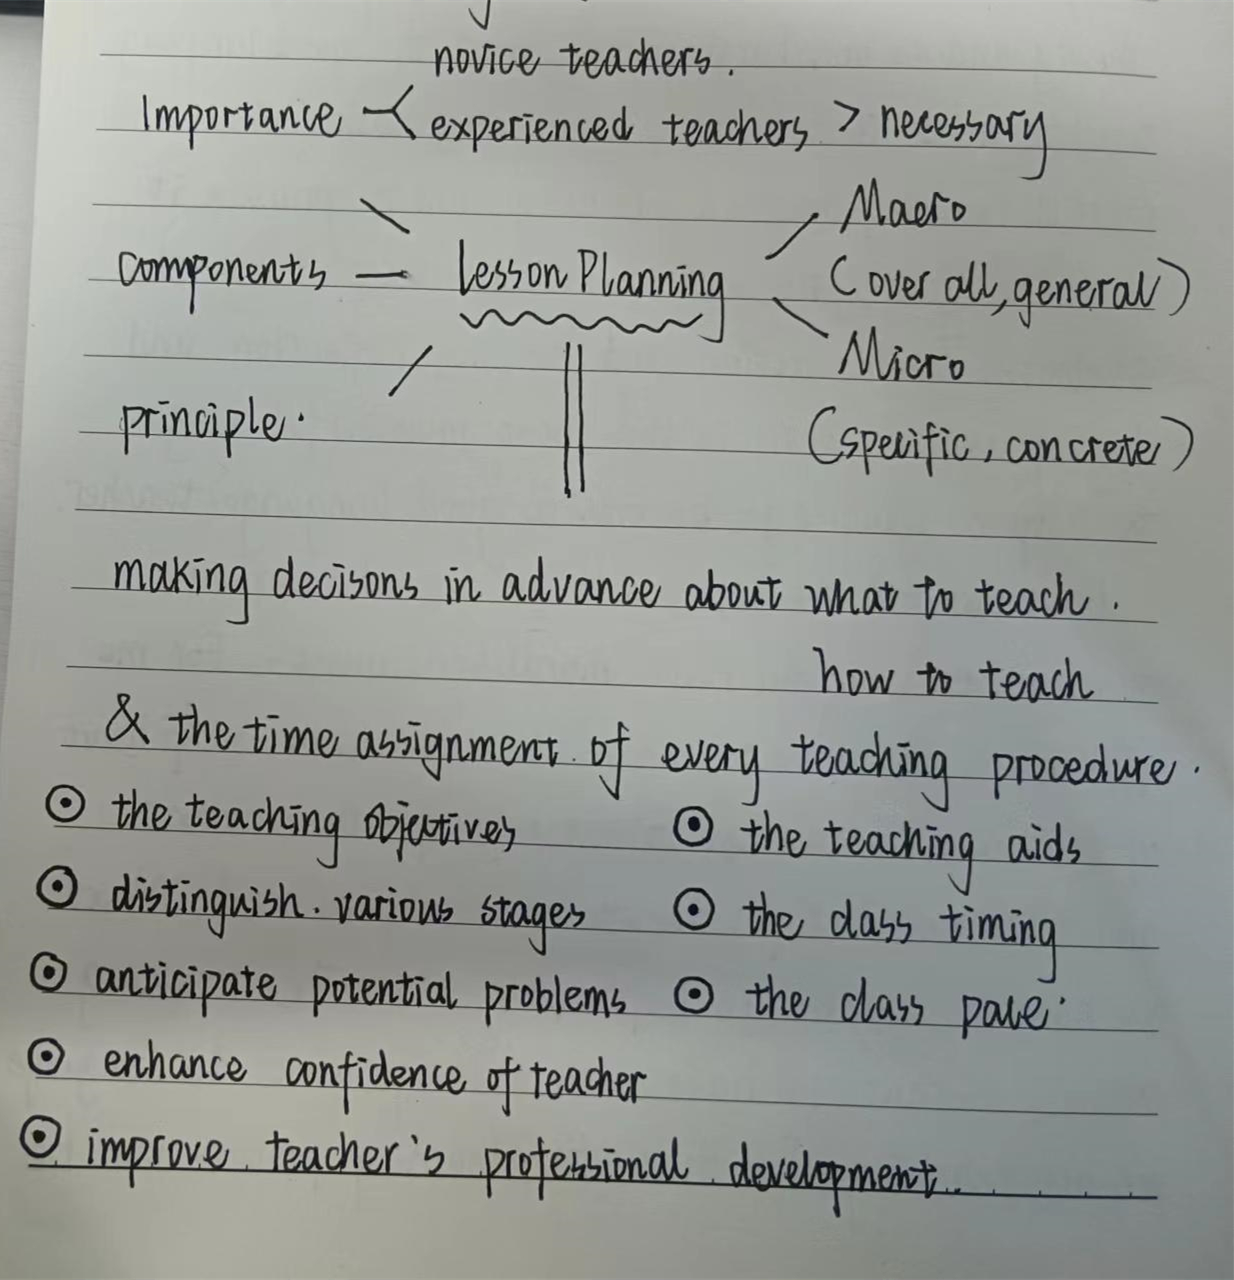 novice teachers.
Importance experienced teachers > necessary
Macro
components — Lesson Planning (over all, general)
Micro
principle. (specific, concrete)
making decisons in advance about what to teach.
how to teach
& the time assignment of every teaching procedure.
⊙ the teaching objectives ⊙ the teaching aids
⊙ distinguish. various stages ⊙ the class timing
⊙ anticipate potential problems ⊙ the class pace.
⊙ enhance confidence of teacher
⊙ improve teacher's professional development.